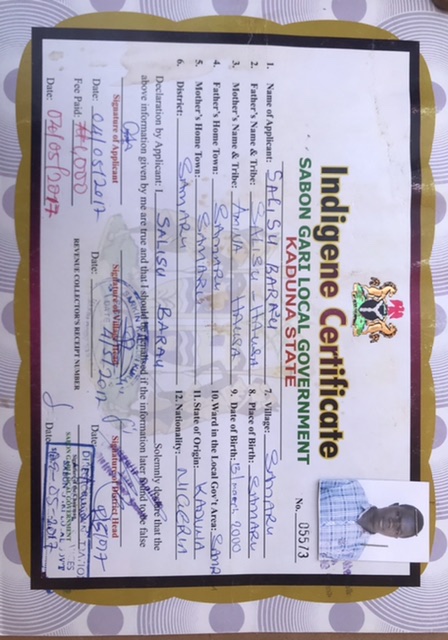 Indigene Certificate
SABON GARI LOCAL GOVERNMENT
KADUNA STATE
No. 05573
1. Name of Applicant: SALISU BARAU
2. Father's Name & Tribe: SALISU - HAUSA
3. Mother's Name & Tribe: AMINA HAUSA
4. Father's Home Town: SAMARU
5. Mother's Home Town: SAMARU
6. District: SAMARU
7. Village: SAMARU
8. Place of Birth: SAMARU
9. Date of Birth: 2000
10. Ward in the Local Gov't Area: SAMARU
11. State of Origin: KADUNA
12. Nationality: NIGERIA
Declaration by Applicant: I SALISU BARAU Solemnly declare that the
above information given by me are true and that I should be penalised if the information later found to be false
Signature of Applicant
Signature of Village Head
Signature of District Head
Date: 04/05/2017
Date: 4/5/2017
Date:
Fee Paid: ₦1,000
REVENUE COLLECTOR'S RECEIPT NUMBER
SABON GARI LOCAL GOVERNMENT
Date: 04/05/2017
Date: 09-05-2017